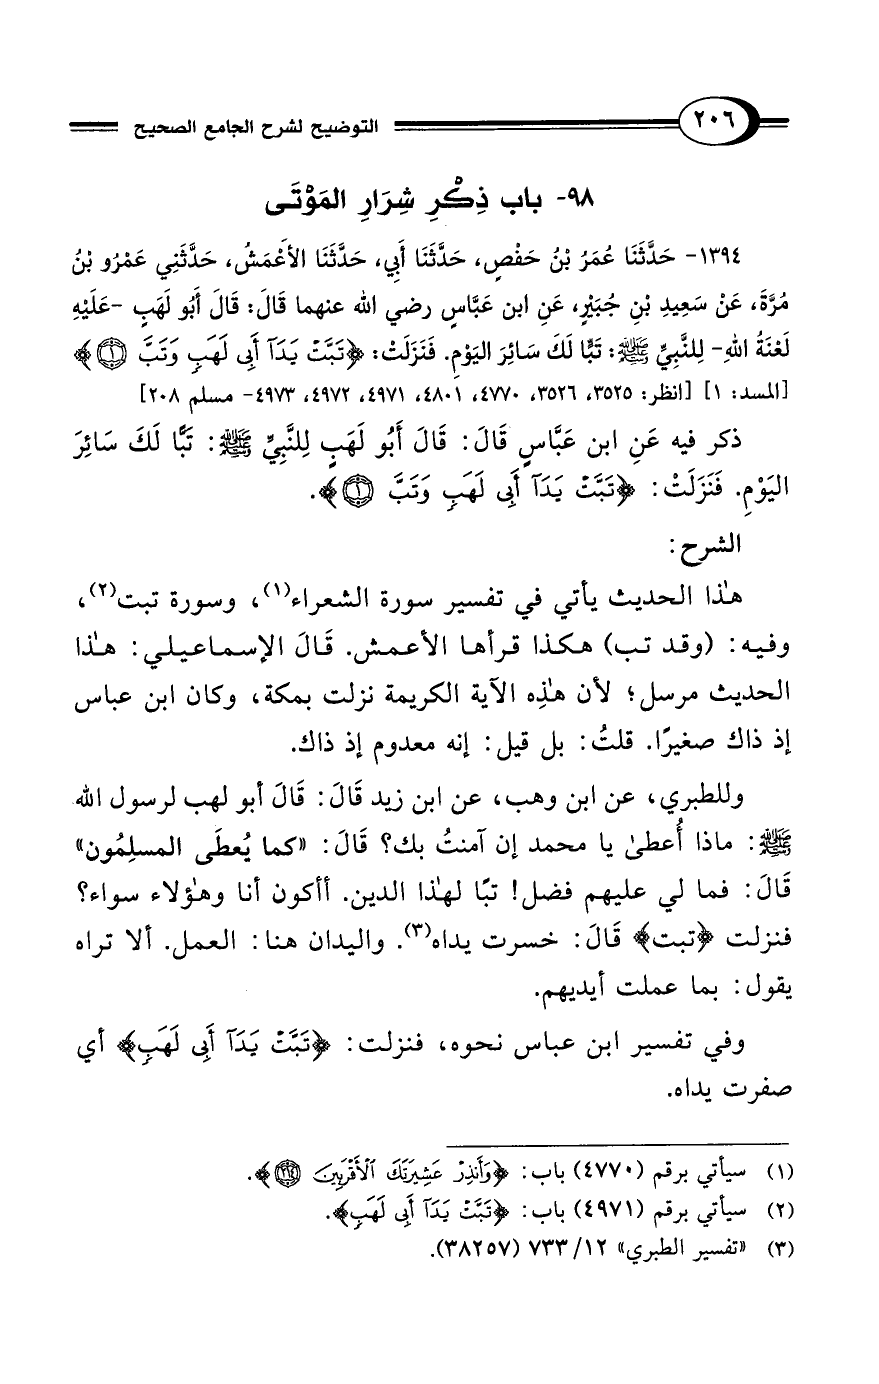 ٢٠٦
التوضيح لشرح الجامع الصحيح
٩٨- باب ذِكْرِ شِرَارِ المَوْتَى
١٣٩٤- حَدَّثَنَا عُمَرُ بْنُ حَفْصٍ، حَدَّثَنَا أَبِي، حَدَّثَنَا الأَعْمَشُ، حَدَّثَنِي عَمْرُو بْنُ
مُرَّةَ، عَنْ سَعِيدِ بْنِ جُبَيْرٍ، عَنِ ابن عَبَّاسٍ رضي الله عنهما قَالَ: قَالَ أَبُو لَهَبٍ -عَلَيْهِ
لَعْنَةُ اللهِ- لِلنَّبِيِّ ﷺ: تَبًّا لَكَ سَائِرَ اليَوْمِ. فَنَزَلَتْ: ﴿تَبَّتْ يَدَآ أَبِى لَهَبٍ وَتَبَّ ۝١﴾
[المسد: ١] [انظر: ٣٥٢٥، ٣٥٢٦، ٤٧٧٠، ٤٨٠١، ٤٩٧١، ٤٩٧٢، ٤٩٧٣- مسلم ٢٠٨]
ذكر فيه عَنِ ابن عَبَّاسٍ قَالَ: قَالَ أَبُو لَهَبٍ لِلنَّبِيِّ ﷺ: تَبًّا لَكَ سَائِرَ
اليَوْمِ. فَنَزَلَتْ: ﴿تَبَّتْ يَدَآ أَبِى لَهَبٍ وَتَبَّ ۝١﴾.
الشرح:
هذا الحديث يأتي في تفسير سورة الشعراء(١)، وسورة تبت(٢)،
وفيه: (وقد تب) هكذا قرأها الأعمش. قَالَ الإسماعيلي: هذا
الحديث مرسل؛ لأن هذِه الآية الكريمة نزلت بمكة، وكان ابن عباس
إذ ذاك صغيرًا. قلتُ: بل قيل: إنه معدوم إذ ذاك.
وللطبري، عن ابن وهب، عن ابن زيد قَالَ: قَالَ أبو لهب لرسول الله
ﷺ: ماذا أُعطىٰ يا محمد إن آمنتُ بك؟ قَالَ: «كما يُعطَى المسلِمُون»
قَالَ: فما لي عليهم فضل! تبًا لهذا الدين. أأكون أنا وهؤلاء سواء؟
فنزلت ﴿تبت﴾ قَالَ: خسرت يداه(٣). واليدان هنا: العمل. ألا تراه
يقول: بما عملت أيديهم.
وفي تفسير ابن عباس نحوه، فنزلت: ﴿تَبَّتْ يَدَآ أَبِى لَهَبٍ﴾ أي
صفرت يداه.
(١) سيأتي برقم (٤٧٧٠) باب: ﴿وَأَنذِرْ عَشِيرَتَكَ ٱلْأَقْرَبِينَ ۝٢١٤﴾.
(٢) سيأتي برقم (٤٩٧١) باب: ﴿تَبَّتْ يَدَآ أَبِى لَهَبٍ﴾.
(٣) «تفسير الطبري» ١٢/ ٧٣٣ (٣٨٢٥٧).